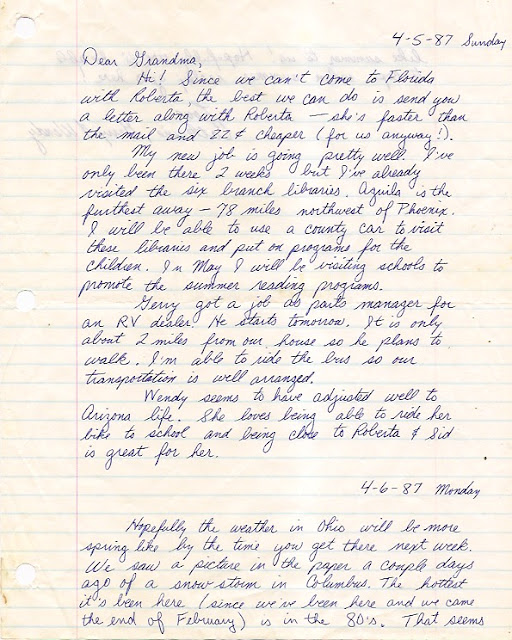 4-5-87 Sunday
Dear Grandma,
Hi! Since we can't come to Florida
with Roberta, the best we can do is send you
a letter along with Roberta – she's faster than
the mail and 22¢ cheaper (for us anyway!).
My new job is going pretty well. I've
only been there 2 weeks but I've already
visited the six branch libraries. Aguila is the
furthest away – 78 miles northwest of Phoenix.
I will be able to use a county car to visit
these libraries and put on programs for the
children. In May I will be visiting schools to
promote the summer reading programs.
Gerry got a job as parts manager for
an RV dealer. He starts tomorrow. It is only
about 2 miles from our house so he plans to
walk. I'm able to ride the bus so our
transportation is well arranged.
Wendy seems to have adjusted well to
Arizona life. She loves being able to ride her
bike to school and being close to Roberta & Sid
is great for her.
4-6-87 Monday
Hopefully the weather in Ohio will be more
spring like by the time you get there next week.
We saw a picture in the paper a couple days
ago of a snow storm in Columbus. The hottest
it's been here (since we've been here and we came
the end of February) is in the 80's. That seems